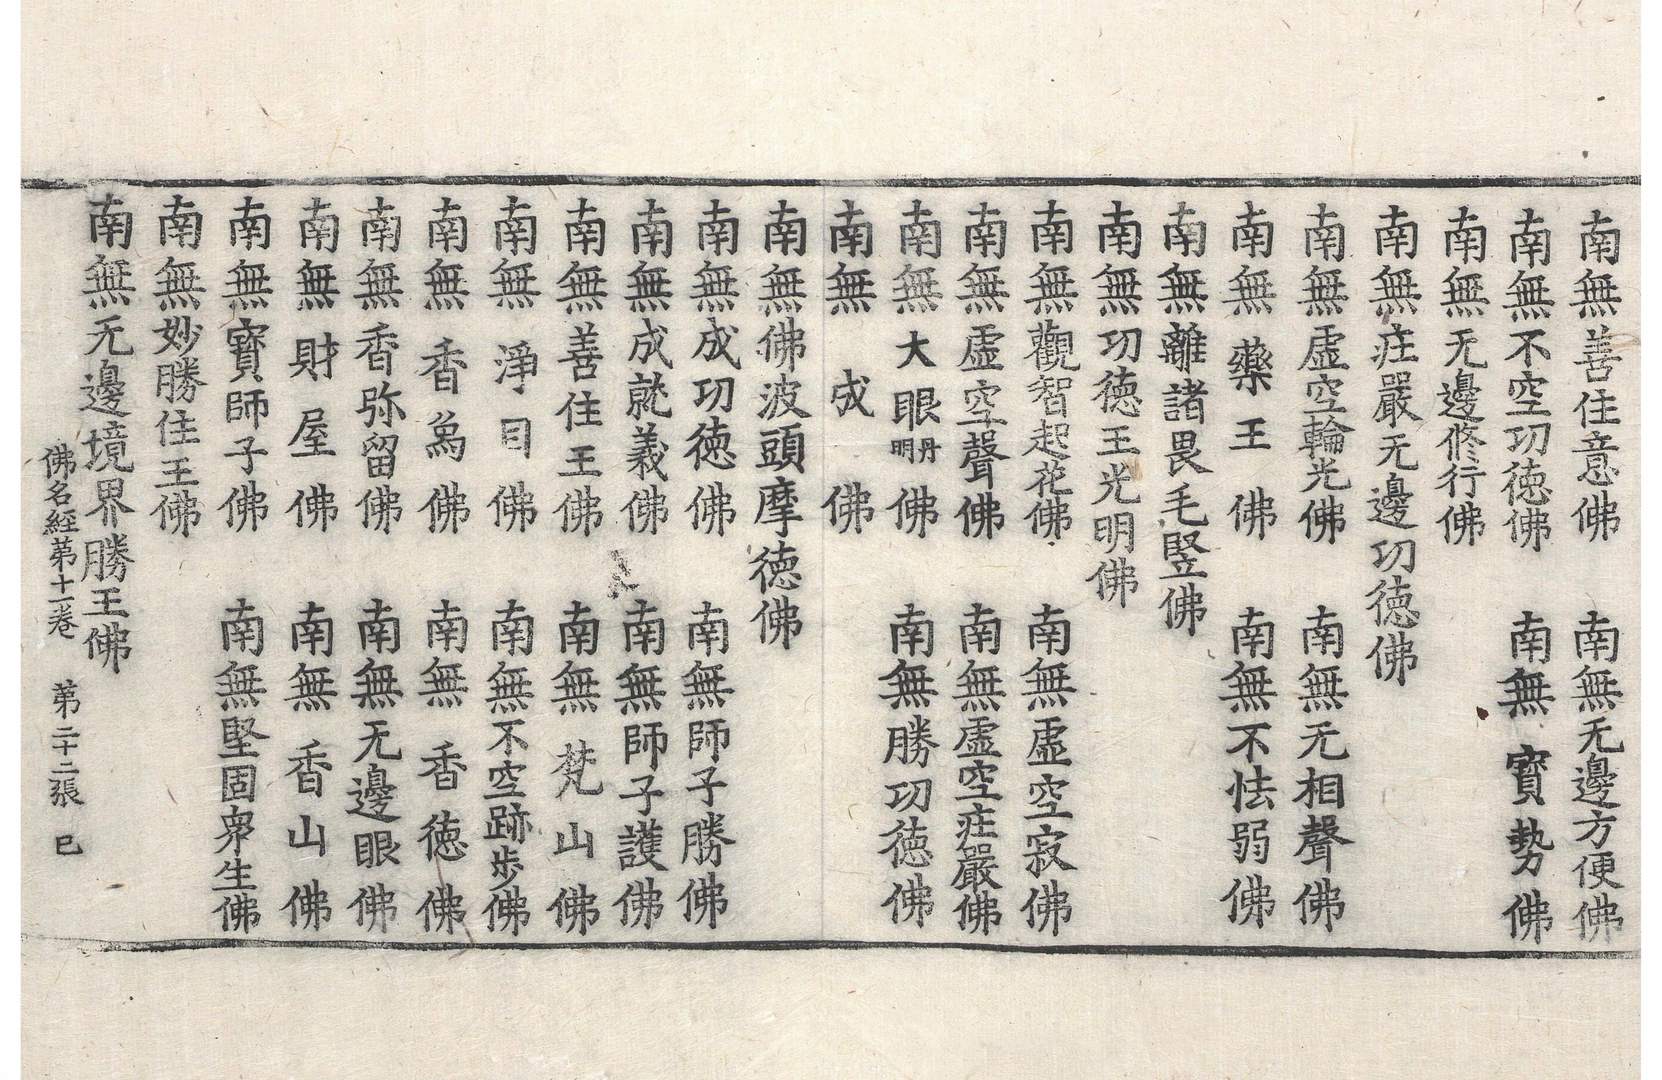 南無善住意佛　南無无邊方便佛
南無不空功德佛　南無寳勢佛
南無无邊修行佛
南無莊嚴无邊功德佛
南無虛空輪光佛　南無无相聲佛
南無藥王佛　南無不怯弱佛
南無離諸畏毛竪佛
南無功德王光明佛
南無觀智起花佛　南無虛空寂佛
南無虛空聲佛　南無虛空莊嚴佛
南無大眼丹明佛　南無勝功德佛
南無成佛
南無佛波頭摩德佛
南無成功德佛　南無師子勝佛
南無成就義佛　南無師子護佛
南無善住王佛　南無梵山佛
南無淨目佛　南無不空跡步佛
南無香烏佛　南無香德佛
南無香弥留佛　南無无邊眼佛
南無財屋佛　南無香山佛
南無寳師子佛　南無堅固衆生佛
南無妙勝住王佛
南無无邊境界勝王佛
佛名經第十一卷　第二十二張　巳